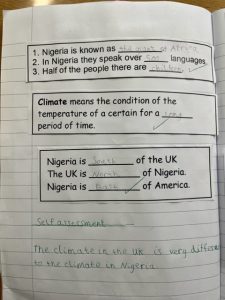 1. Nigeria is known as the giant of Africa.
2. In Nigeria they speak over 500 languages.
3. Half of the people there are children
Climate means the condition of the
temperature of a certain for a long
period of time.
Nigeria is South of the UK
The UK is North of Nigeria.
Nigeria is East of America.
Self assessment
The climate in the uk is very differe
to the climate in Nigeria.